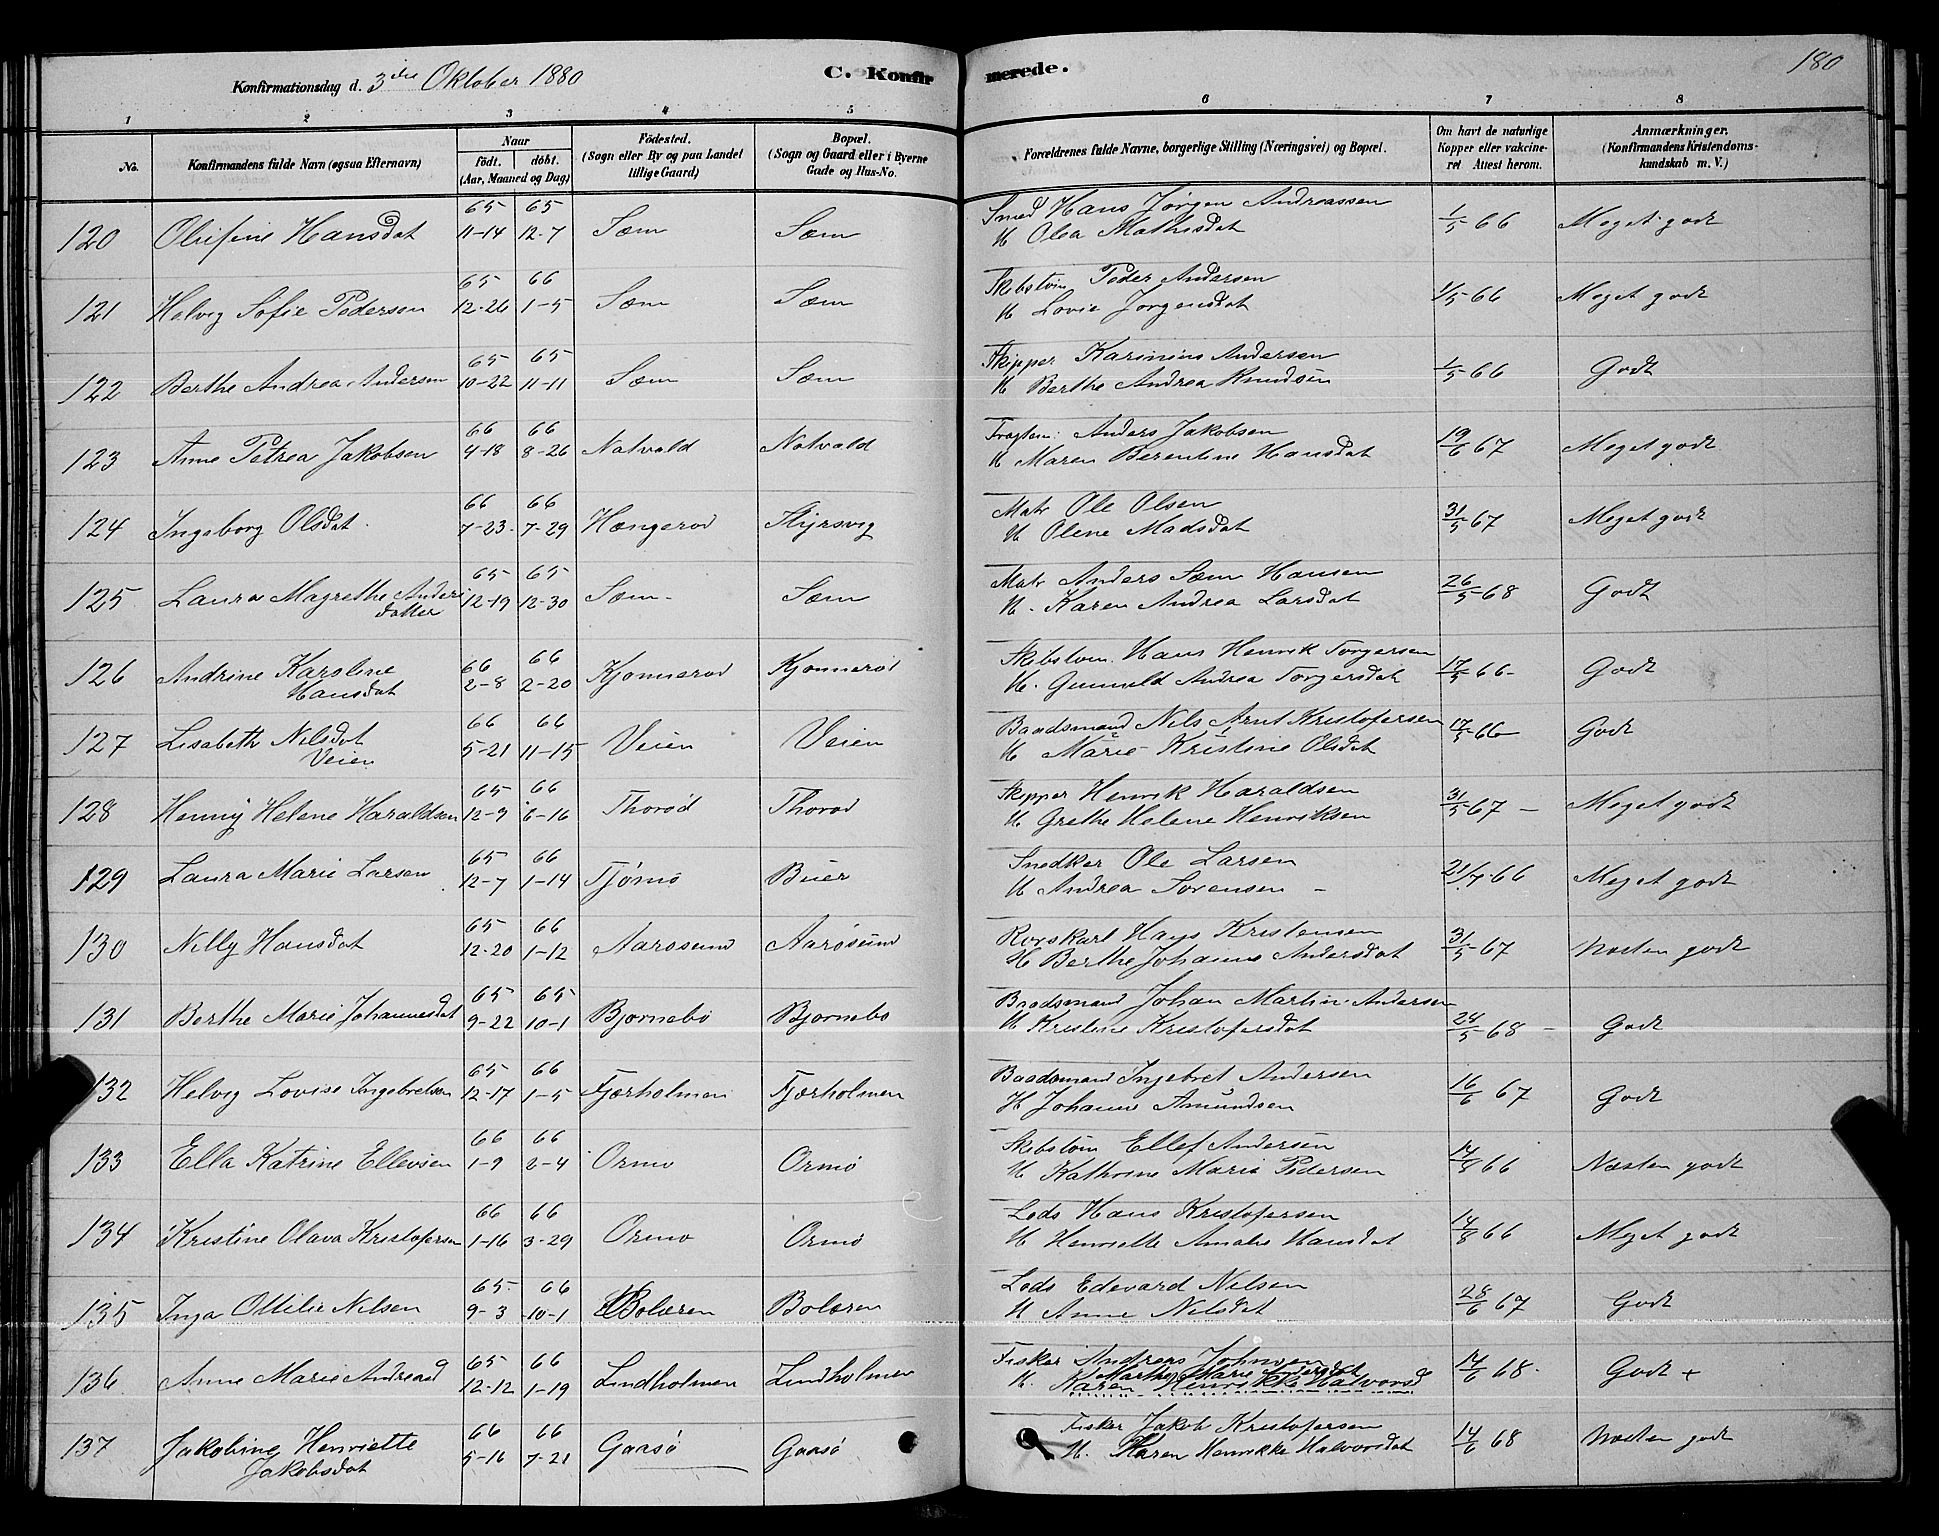 180
Konfirmationsdag d. 3die Oktober 1880
C. Konfirmerede.
1 2 3 4 5 6 7 8
No.
Konfirmandens fulde Navn (ogsaa Efternavn)
Naar
født. døbt.
(Aar, Maaned og Dag)
Fødested.
(Sogn eller By og paa Landet
tillige Gaard)
Bopæl.
(Sogn og Gaard eller i Byerne
Gade og Hus-No.
Forældrenes fulde Navne, borgerlige Stilling (Næringsvei) og Bopæl.
Om havt de naturlige
Kopper eller vakcine-
ret Attest herom.
Anmærkninger.
(Konfirmandens Kristendoms-
kundskab m. V.)
65 65 Smed Hans Jørgen Andreassen
120 Olufine Hansdat 11-14 12-7 Sæm Sæm H Olea Mathisdat 1/5 66 Meget godt
65 66 Skibstøm Peder Andersen
121 Helvig Sofie Pedersen 12-26 1-5 Sæm Sæm H Lovie Jorgensdat 1/5 66 Meget godt
65 65 Skipper Karinius Andersen
122 Berthe Andrea Andersen 10-22 11-11 Sæm Sæm H Berthe Andrea Knudsen 1/5 66 Godt
66 66 Anders Jakobsen
123 Anne Petrea Jakobsen 4-18 8-26 Natvald Notvald H Maren Berentine Hansdat 19/6 67 Meget godt
66 66 Matr Ole Olsen
124 Ingeborg Olsdat 7-23 7-29 Hængerød Styrsvig H Olene Madsdat 31/5 67 Meget godt
65 65 Matr Anders Sæm Hansen
125 Laura Magrethe Anders
datter 12-19 12-30 Sæm Sæm H. Karen Andrea Larsdat 26/5 68 Godt
66 66 Skibstøm. Hans Henrik Torgersen
126 Andrine Karoline
Hansdat 2-8 2-20 Kjonnerod Kjonnerod H. Gunnild Andrea Torgersdat 17/5 66 Godt
66 66 Baadsmand Nils Arnt Kristofersen
127 Lisabeth Nilsdat
Veien 5-21 11-15 Veien Veien H Marie Kristine Olsdat 17/5 66 Godt
65 66 Skipper Henrik Haraldsen
128 Henny Helene Haraldsen 12-9 6-16 Thorød Thorod H Grethe Helene Henriksen 31/5 67 – Meget godt
65 66 Snedker Ole Larsen
129 Laura Marie Larsen 12-7 1-14 Tjømø Buer H Andrea Sorensen – 21/7 66 Meget godt
65 66 Rorskarl Hans Kristensen
130 Nelly Hansdat 12-20 1-12 Aarosund Aarøsund H Berthe Johanne Andersdat 31/5 67 Næsten godt
65 65 Baadsmand Johan Martin Andersen
131 Berthe Marie Johannesdat 9-22 10-1 Bjornebo Bjornebo H Kristine Kristofersdat 24/5 68 – Godt
65 66 Baadsmand Ingebret Andersen
132 Helvig Lovise Ingebretsen 12-17 1-5 Fjærholmen Fjærholmen H Johanne Amundsen 16/6 67 Godt
66 66 Skibstøm Ellef Andersen
133 Ella Katrine Ellevsen 1-9 2-4 Ormo Ormø H Kathrine Marie Pedersen 14/8 66 Næsten godt
66 66 Lods Hans Kristofersen
134 Kristine Olava Kristofersen 1-16 3-29 Ormo Ormø H Henriette Amalie Hansdat 14/8 66 Meget godt
65 66 Lods Edevard Nelsen
135 Inga Ottilie Nelsen 9-3 10-1 Bolæren Bolæren H Anne Nelsdat 28/6 67 Godt
65 66 Fisker Andreas Johnsen
136 Anne Marie Andreasd 12-12 1-19 Lindholmen Lindholmen H. Marthe Marie Andersdat
Karen Henrikke Halvorsd 14/6 68 Godt +
66 66 Fisker Jakob Kristofersen
137 Jakobine Henriette
Jakobsdat 5-16 7-21 Gaasø Gaasø H. Karen Henrikke Halvorsdat 14/6 68 Næsten godt